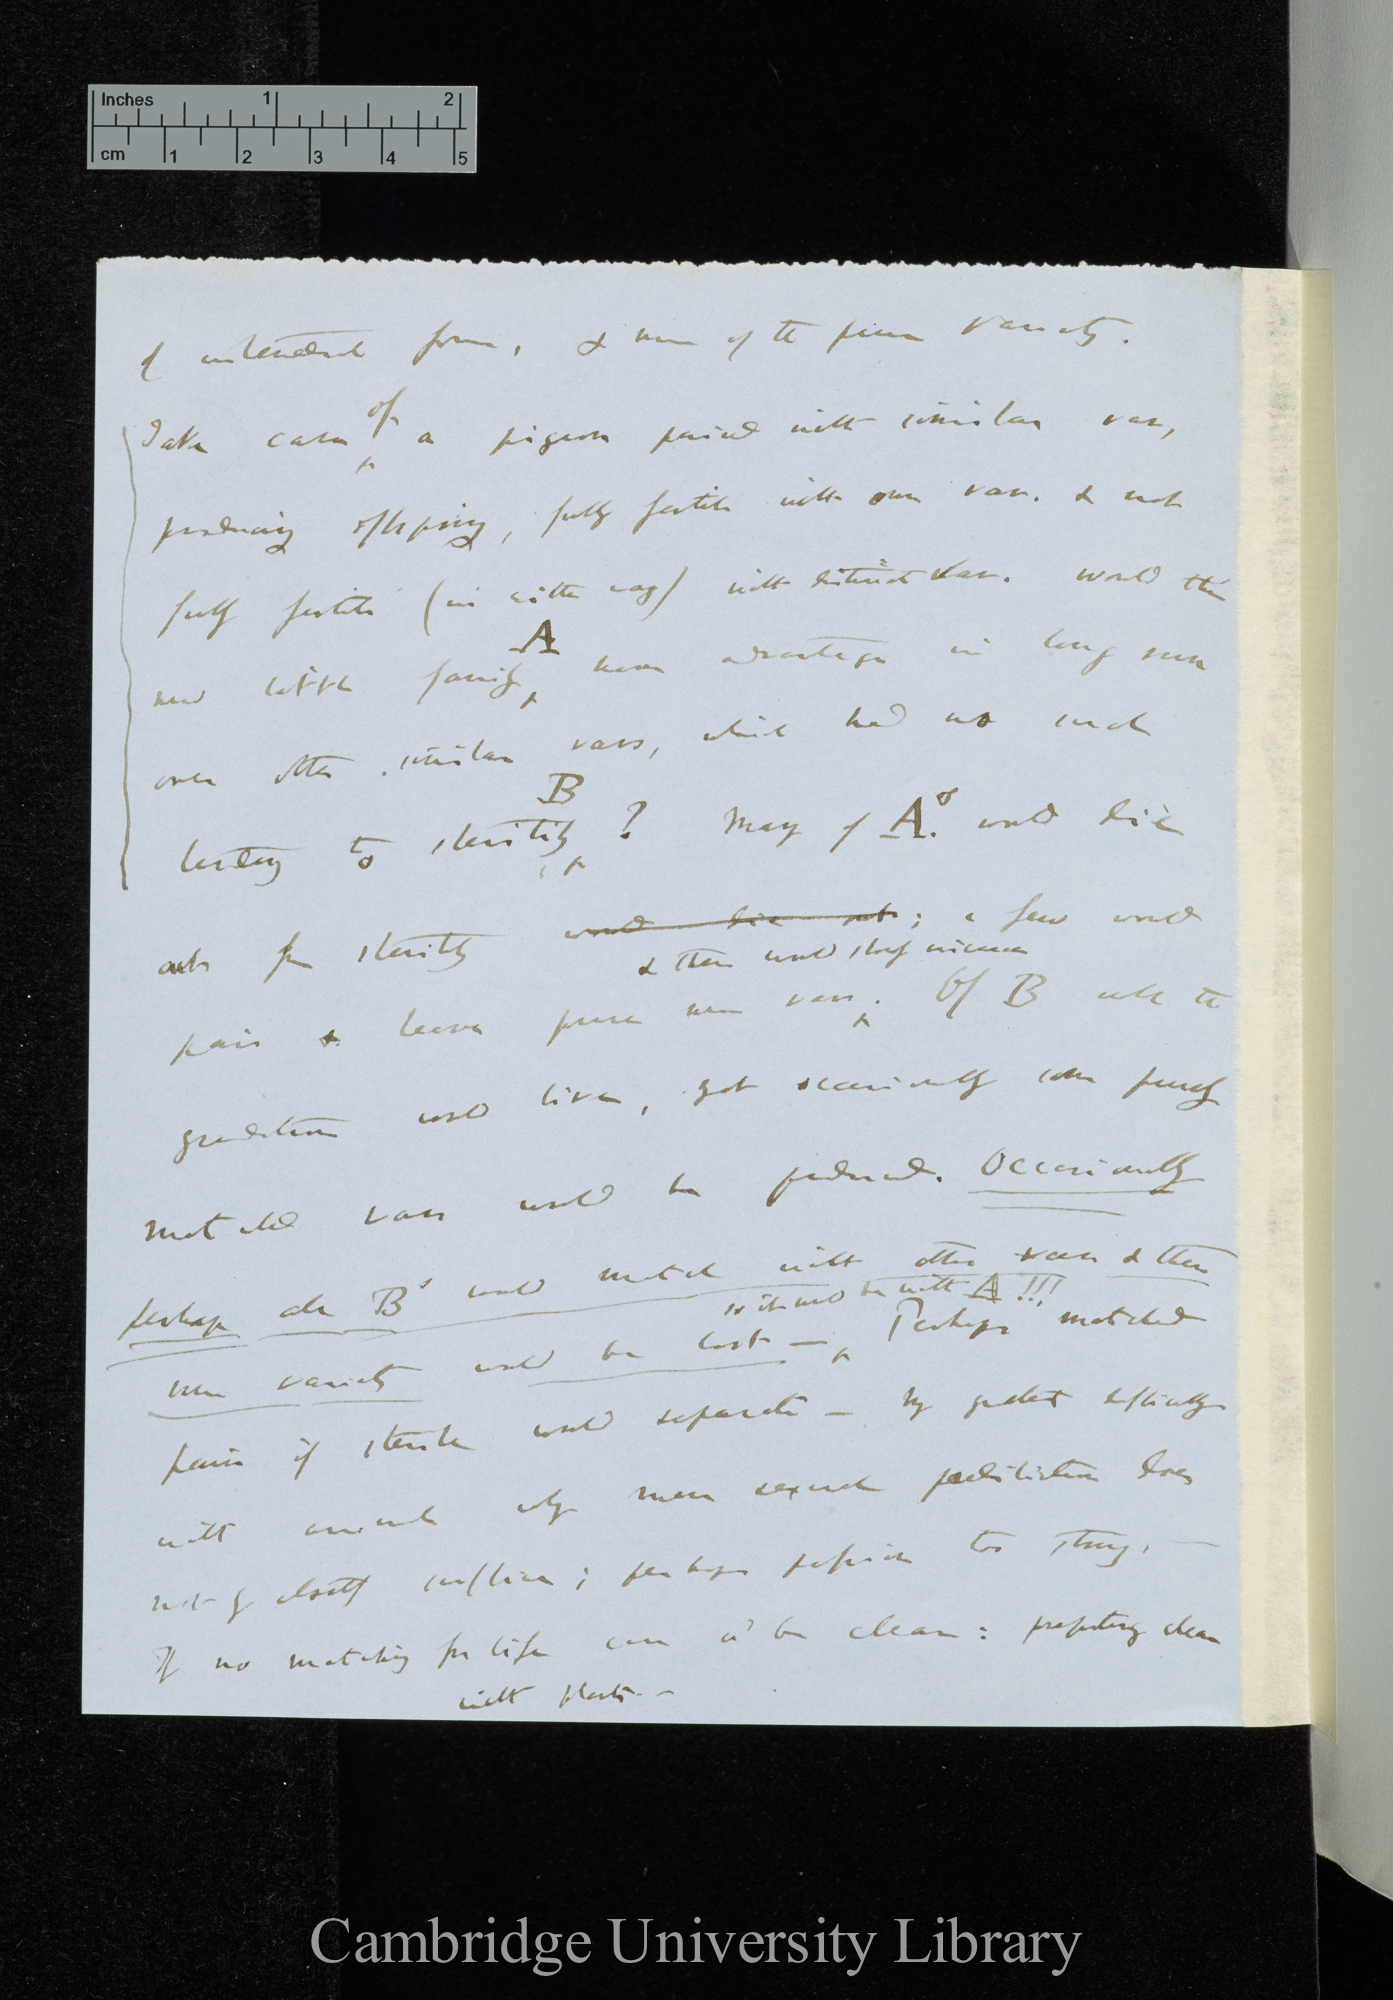 Inches 1 2
cm 1 2 3 4 5
of intermediate form, & none of the pure variety.
Take case of a pigeon paired with similar var,
producing offspring, fully fertile with own var. & not
fully fertile (in either way) with distinct var. would this
new little family A have advantage in long run
over other similar vars, which had no such
tendency to sterility B ? Many of A.s would die
out from sterility would die out; a few would
pair & leave pure new vars & these would increase. Of B all the
gradations would live, yet occasionally some purely
matched vars would be produced. Occasionally
perhaps all Bs would match with other vars & then
new variety would be lost — so it would be with A !!! Perhaps matched
pairs if sterile would separate — My greatest difficulty
with animals why mere sexual predilection does
not suffice; perhaps passion too strong. —
If no matching for life case wd be clear: clear
with plants. —
Cambridge University Library